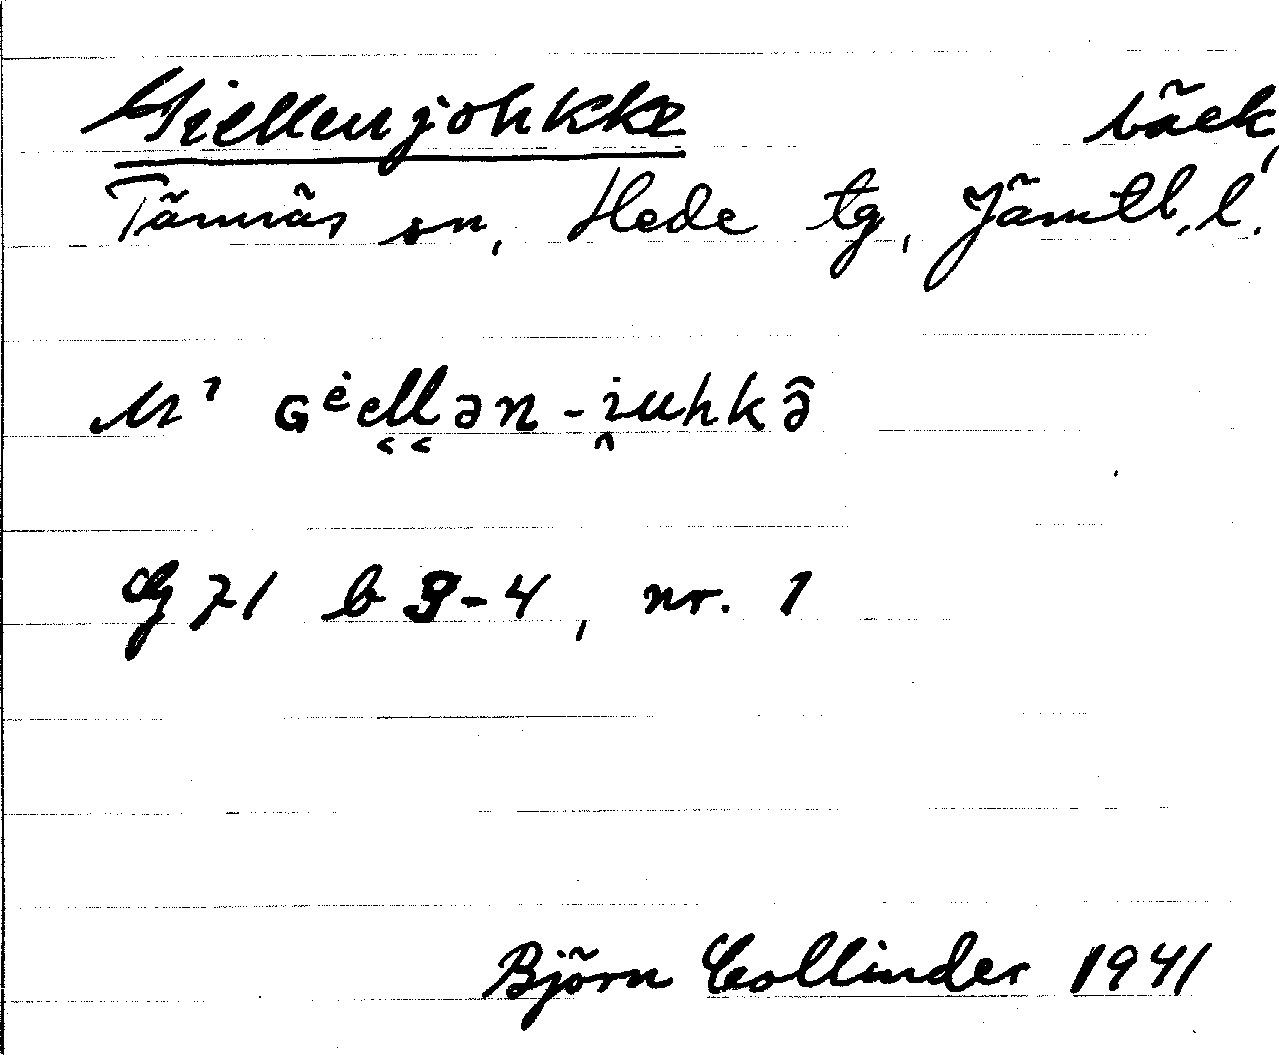 Giellenjohkke bäck,
Tännäs sn, Hede tg, Jämtl. l.
M¹ ɢėellən-i̯uhkə̂
Gg 71 b 3-4, nr. 1
Björn Collinder 1941